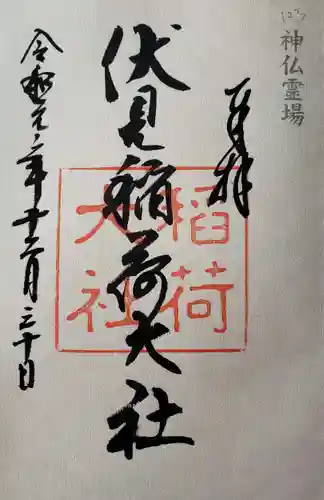 神仏靈場
奉拝
伏見稲荷大社
稲荷
大社
令和元年十二月三十日